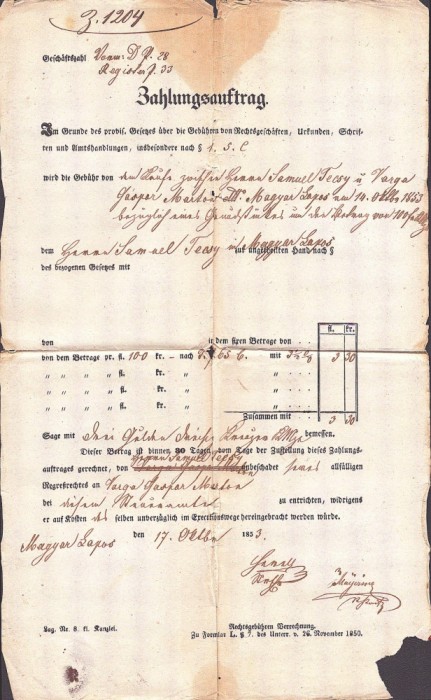 Z. 1204
Geschäftszahl Vorm: D P. 28
Register f. 33
Zahlungsauftrag.
Im Grunde des provis. Gesetzes über die Gebühren von Rechtsgeschäften, Urkunden, Schrif-
ten und Amtshandlungen, insbesondere nach § 1. S. C
wird die Gebühr von dem Kaufe zwischen Herrn Samuel Tecsy u Varga
Gaspar Marton dto. Magyar Lapos am 14. Oktbr 1853
bezüglich eines Grundstückes um den Betrag von 100 f
dem Herrn Samuel Tecsy in Magyar Lapos zur ungetheilten Hand nach §
des bezogenen Gesetzes mit
fl. kr.
von in dem fixen Betrage von
von dem Betrage pr. fl. 100 kr. — nach 65 mit 3 30
" " " fl. kr. "
" " " fl. kr. "
" " " fl. kr. "
Zusammen mit 3 30
Sage mit drei Gulden dreißig Kreuzer bemessen.
Dieser Betrag ist binnen 30 Tagen, vom Tage der Zustellung dieses Zahlungs-
Herrn Samuel Tecsy
auftrages gerechnet, von Varga Gaspar Marton unbeschadet seines allfälligen
Regreßrechtes an Varga Gaspar Marton
bei diesem Steueramte zu entrichten, widrigens
er auf Kosten desselben unverzüglich im Executionswege hereingebracht werden würde.
Magyar Lapos den 17. Oktbr 1853.
Lag. Nr. 8. fl. Kanzlei.
Rechtsgebühren Verrechnung.
Zu Formular L. § 7. des Unterr. v. 26. November 1850.